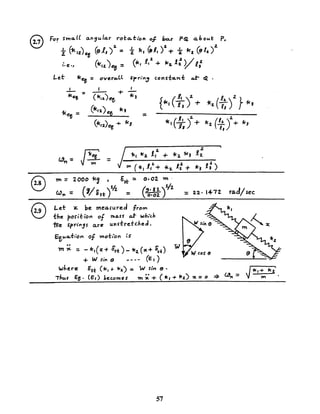 2.7 For small angular rotation of bar PQ about P,
1/2 (k12)eq (θ l3)² = 1/2 k1 (θ l1)² + 1/2 k2 (θ l2)²
i.e., (k12)eq = (k1 l1² + k2 l2²) / l3²
Let keq = overall spring constant at Q.
1/keq = 1/(k12)eq + 1/k3
keq = (k12)eq k3 / ((k12)eq + k3) = {k1 (l1/l3)² + k2 (l2/l3)²} k3 / (k1 (l1/l3)² + k2 (l2/l3)² + k3)
ωn = √(keq/m) = √((k1 k3 l1² + k2 k3 l2²) / (m (k1 l1² + k2 l2² + k3 l3²)))
2.8 m = 2000 kg, δst = 0.02 m
ωn = (g/δst)^1/2 = (9.81/0.02)^1/2 = 22.1472 rad/sec
2.9 Let x be measured from
the position of mass at which
the springs are unstretched.
Equation of motion is
m ẍ = - k1 (x + δst) - k2 (x + δst)
+ W sin θ ---- (E1)
where δst (k1 + k2) = W sin θ.
Thus Eq. (E1) becomes m ẍ + (k1 + k2) x = 0 ⇒ ωn = √((k1 + k2)/m)
k1
x
W sin θ
m
k2
θ
W
W cos θ
θ
57